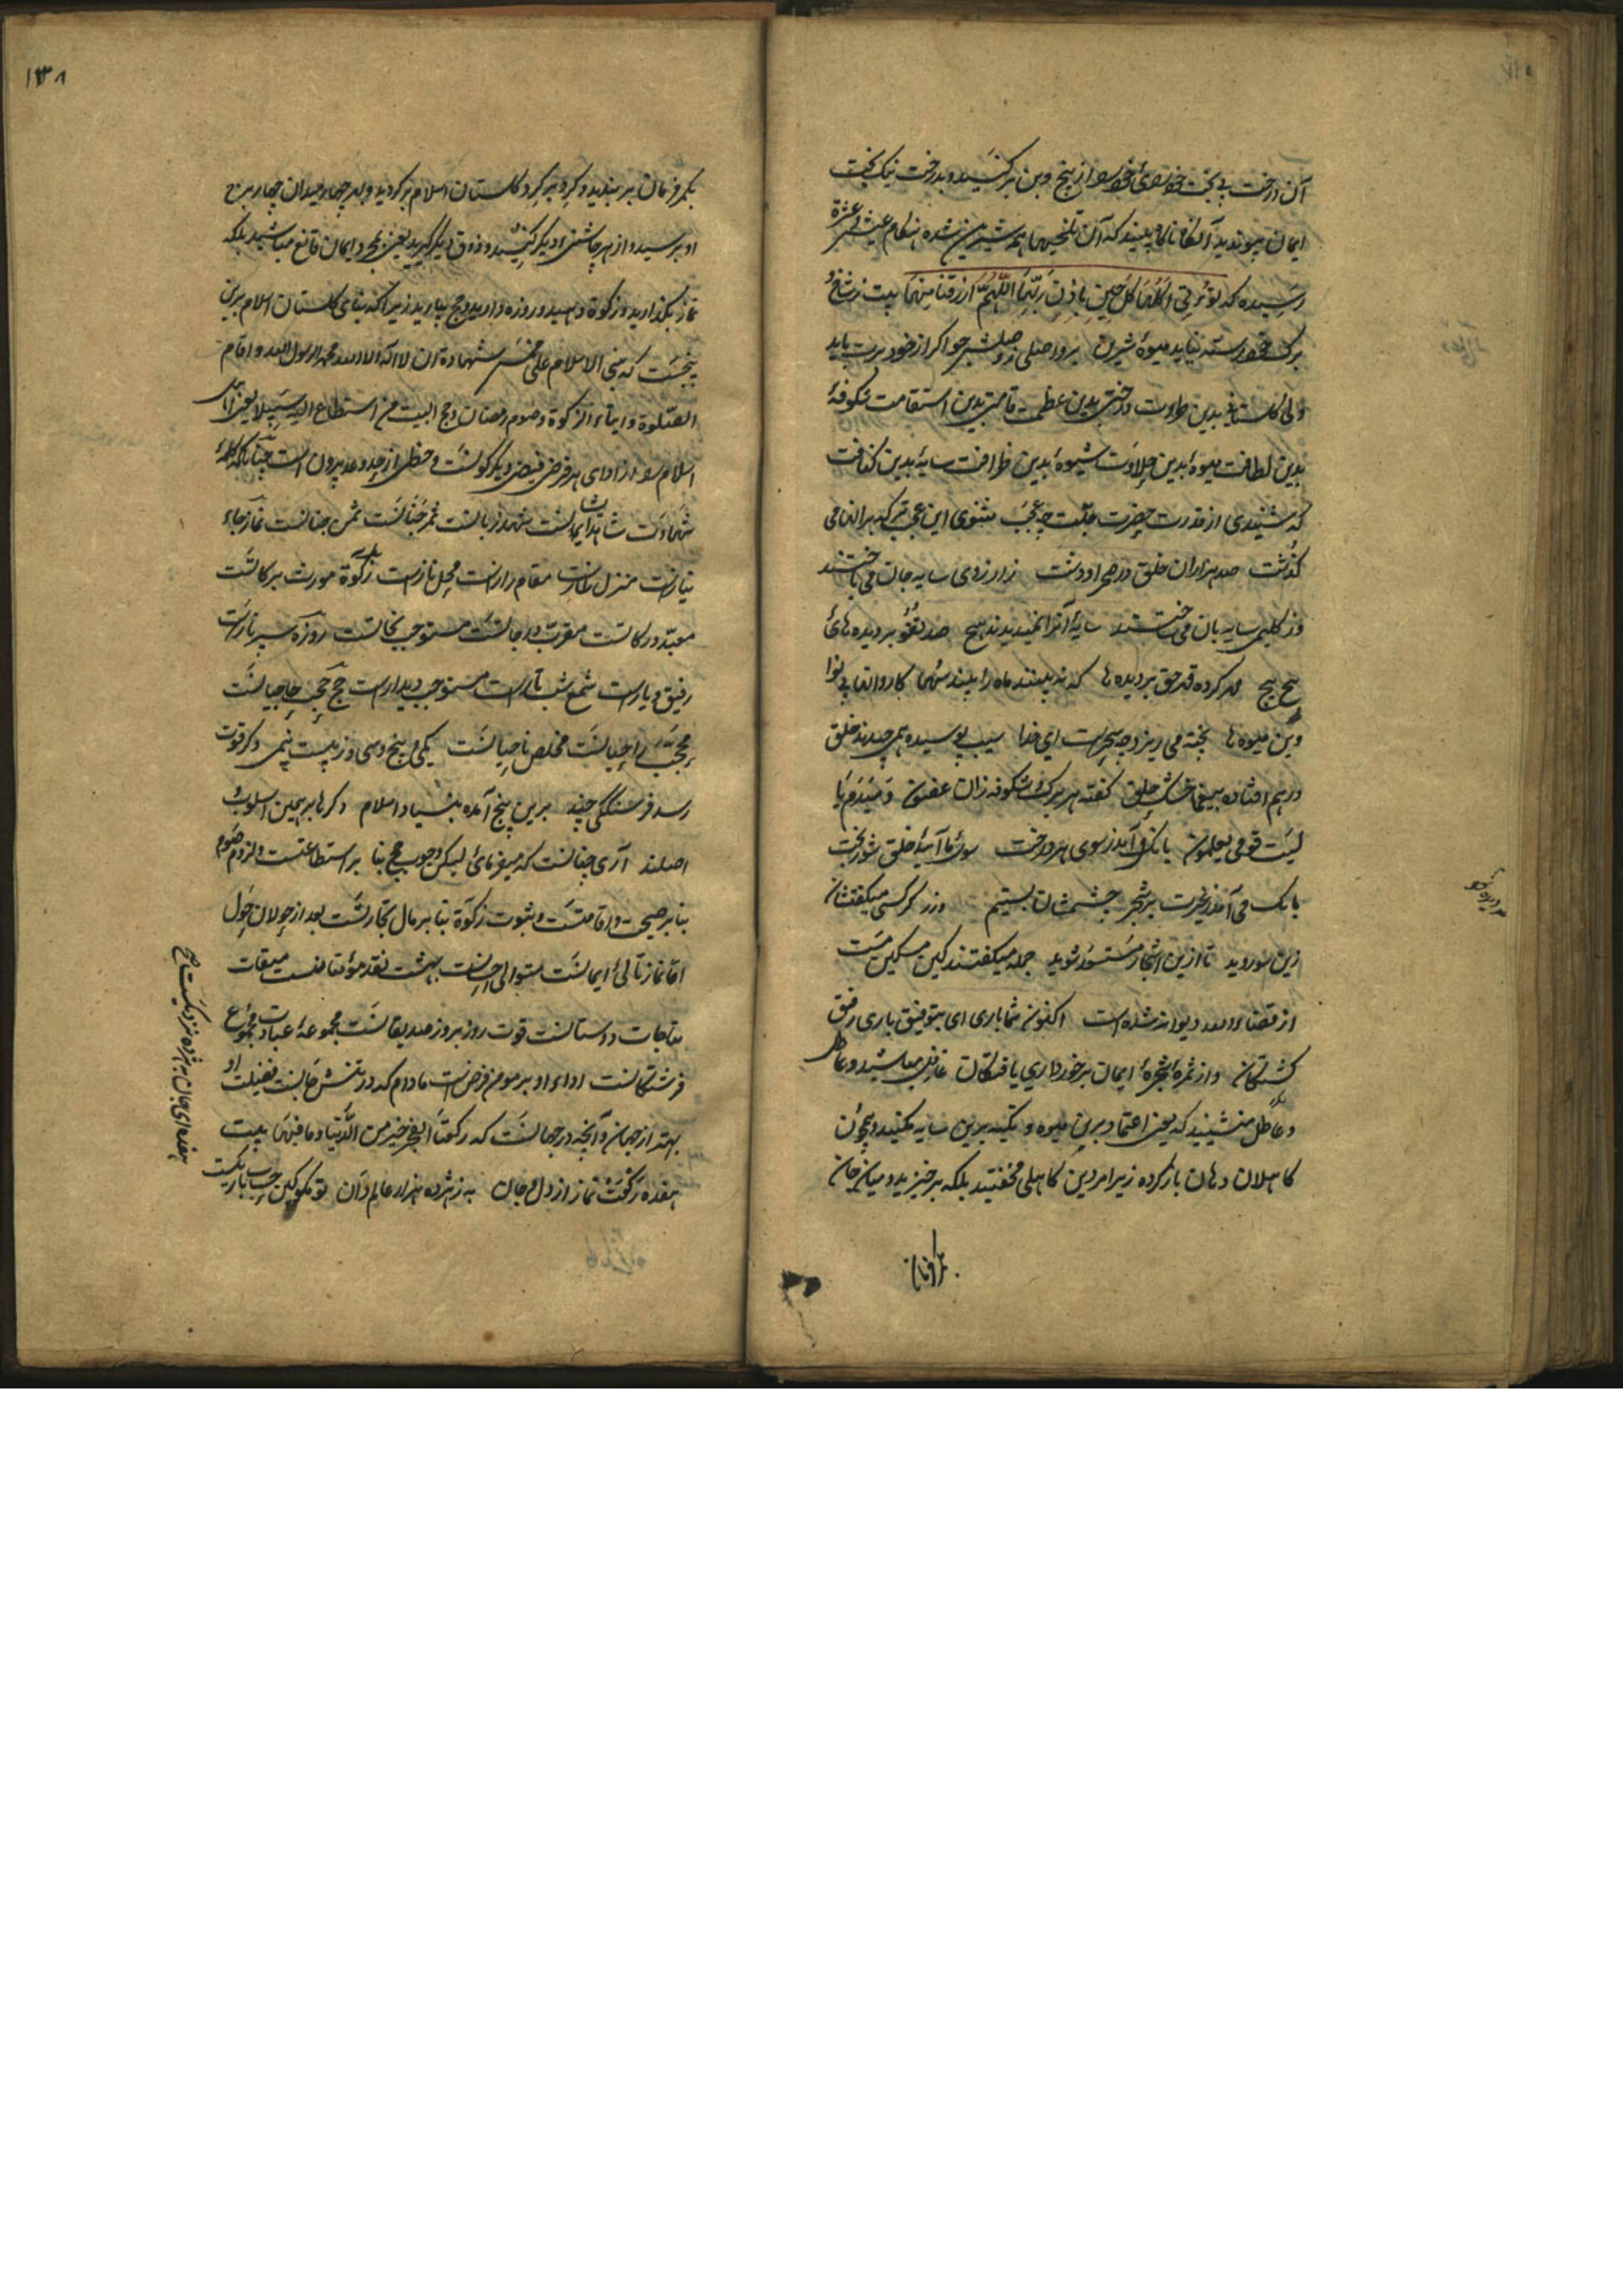 آن درخت بی بخت خودروی را از بیخ و بن برکنید و بدرخت نیک بخت
ایمان پیوندید آنگاه ببینید که آن تلخیها همه شیرین شده هنگام عیش و عشرة
رسیده که تؤتی اکلها کل حین باذن ربها اللهم ارزقنا منها بیت ز شاخ و
برک خودرسته نیاید میوهٔ شیرین برو اصلی و وصلش جو اگر از خود برت باید
ولی گلستانی بدین طراوت درختی بدین عظمت قامتی بدین استقامت شکوفهٔ
بدین لطافت میوهٔ بدین حلاوت شیوهٔ بدین ظرافت سایهٔ بدین کثافت
که شنیدی از قدرت حضرت چه عجب مثنوی این عجبتر که بر ایشان می
گذشت صد هزاران خلق در صحرا و دشت ز آرزوی سایه جان می باختند
وز کلیمی سایه بان می ساختند سایهٔ آنرا نمیدیدند هیچ صد تفو بر دیده های
پیچ پیچ مهر کرده قهر حق بر دیده ها که نبیند ماه را بیند سها کاروانها بی نوا
وین میوه ها پخته می ریزد چه سحرست ای خدا سیب پوسیده همی چیدند خلق
درهم افتاده بیغما خشک حلق گفته هر برک و شکوفه زان غصون دمبدم یا
لیت قومی یعلمون بانک می آمد ز سوی هر درخت سوی ما آیید خلق شوربخت
بانک می آمد ز غیرت بر شجر چشمشان بستیم ور کسی میگفتشان
زین سو روید تا ازین اشجار مستسعد شوید جمله میگفتند کین مسکین مست
از قضاء الله دیوانه شده است اکنون شما باری ای بتوفیق باری رفیق
گشتگان و از ثمرهٔ شجرهٔ ایمان برخورداری یافتگان غافل مباشید و عاطل
و عاطل منشینید که یعنی اعتماد برین میوه و تکیه برین سایه مکنید و همچون
کاهلان دهان باز کرده زیر امر دین کاهلی مخفتید بلکه برخیزید و میان جان
۱۳۸
بکمر فرمان بربندید و گرد بر گرد گلستان اسلام برگردید و بهر چهار میدان چهار برج
او برسید و از هر چاشنی دیگر کنید و ذوق دیگر گیرید یعنی بمجرد ایمان قانع مباشید بلکه
نماز بگذارید و زکوة دهید و روزه دارید و حج بیارید زیرا که بنای گلستان اسلام برین
پنجست که بنی الاسلام علی خمس شهادة ان لا اله الا الله محمد الرسول الله و اقام
الصلوة و ایتاء الزکوة و صوم رمضان و حج البیت من استطاع الیه سبیلا یعنی
اسلام را از ادای هر فرض فیض دیگر گونست و حظی از حد و عد بیرون است چنانکه کلمهٔ
شهادت شاهد ایمانست شهد زبانست ثمر جنانست ثمن جنانست نماز جاء
نیازست منزل نمازست مقام رازست محل نازست زکوة مورث برکاتست
مبعد درکاتست مقرب درجاتست مستوجب نجاتست روزه سپر نارست
رفیق و یارست شمع شب تارست مستوجب دیدارست حج حاجیانست
محجت راجیانست مخلص ناجیانست یکی پنج و سی وز بیست نیمی دگر قوت
رسد فرسنگکی چند برین پنج آمده بنیاد اسلام دگرها بر همین اسلوب و
اصلند آری چنانست که میفرمائی لیکن وجوب حج بنا بر استطاعتست و لزوم صوم
بنا بر صحت و اقامتست و ثبوت زکوة بنا بر مال تجارتست بعد از جولان حول
اما نماز تالئ ایمانست متوالی احسانست بهشت نقد مؤمنانست میقات
مناجات دوستانست قوت روز بروز صدیقانست مجموعهٔ عبادت مجموع
فرشتگانست اداء او بر مومن فرض است مادام که در تنش جانست فضیلت او
بهتر از جهان و آنچه در جهانست که رکعتا الفجر خیر من الدنیا و ما فیها بیت
هفده رکعت نماز از دل و جان به ز هژده هزار عالم دان تو مگو کین حسب باریکست
هفده ای جان بهژده نزدیکست